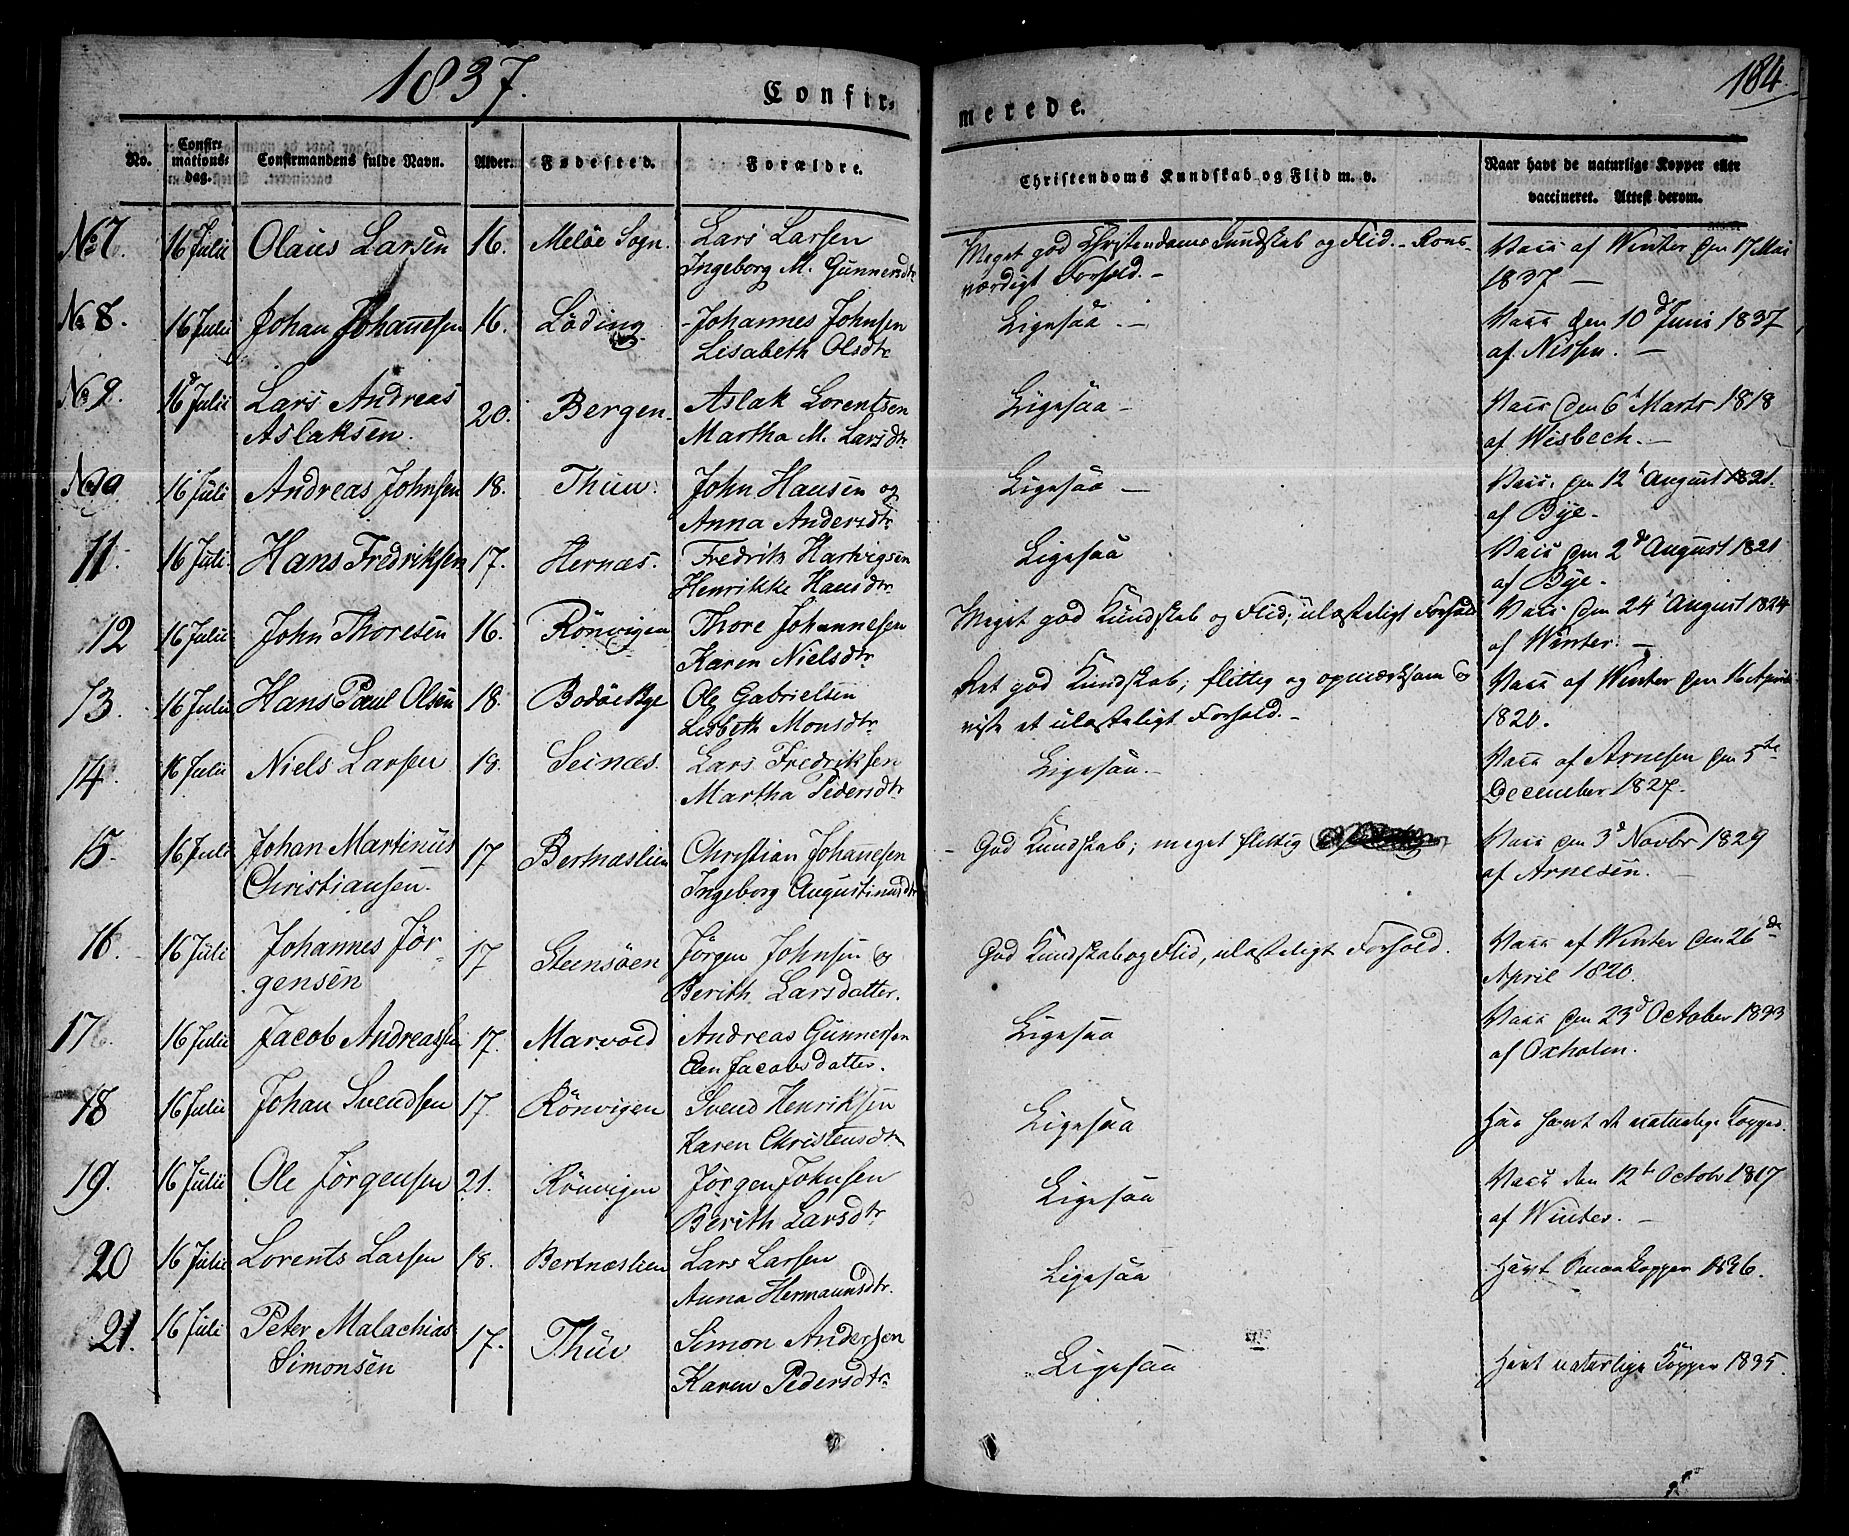 1837.
184
Confir-
merede.
No.
Confir-
mations-
dag.
Confirmandens fulde Navn.
Alder.
Fødested.
Forældre.
Christendoms Kundskab og Flid m. v.
Naar havt de naturlige Kopper eller
vaccineret. Attest derom.
No 7. 16 Julii Olaus Larsen 16. Meløe Sogn. Lars Larsen
Ingeborg M. Gunnersdtr
Meget god Christendoms Kundskab og Flid.
værdigt Forhold. –
Vacc af Winter den 17 Mai
1837 –
No 8. 16 Julii Johan Johanesen 16. Löding Johannes Johnsen
Lisabeth Olsdtr
Ligesaa. –
Vacc den 10d Juni 1837
af Nissen. –
No 9. 16 Julii Lars Andreas
Aslaksen. 20. Bergen Aslak Lorentsen
Martha M. Larsdtr
Ligesaa –
Vacc den 6t Marts 1818
af Wisbech. –
No 10 16 Juli Andreas Johnsen 18. Thuv. John Hansen og
Anna Andersdtr
Ligesaa –
Vacc. den 12t August 1821.
af Bye.
11. 16 Juli Hans Fredriksen 17. Hernæs. Fredrik Hartvigsen
Henrikke Hansdtr
Ligesaa
Vacc den 2de August 1821
af Bye.
12 16 Julii John Thoresen 16. Rönvigen Thore Johannesen
Karen Nielsdtr
Meget god Kundskab og Flid; ulasteligt Forhold
Vacc den 24t August 1824
af Winter. –
13. 16 Julii Hans Paul Olsen 18. Bodøe Bye Ole Gabrielsen
Lisbeth Monsdtr
Ret god Kundskab; flittig og opmærksom
viste et ulasteligt Forhold. –
Vacc af Winter den 16 April
1820.
14. 16 Julii Niels Larsen 18. Seinæs. Lars Fredriksen
Martha Pedersdtr
Ligesaa. –
Vacc af Arnesen den 5te
December 1827.
15. 16 Juli Johan Martinus
Christiansen. 17 Bertnæslien Christian Johanesen
Ingeborg Augustinusdtr
God Kundskab; meget flittig
Vacc den 3d Novbr 1829
af Arnesen. –
16. 16 Juli Johannes Jör-
gensen 17 Steensöen Jörgen Johnsen og
Berith Larsdatter.
God Kundskab og Flid, ulasteligt Forhold.
Vacc af Winter den 26de
April 1820.
17 16 Julii Jacob Andreassen 17. Marvold Andreas Gunnersen
Jacobsdatter.
Ligesaa
Vacc den 23d October 1833
af Oxholm.
18 16 Julii Johan Svendsen 17. Rönvigen Svend Henriksen
Karen Christensdtr
Ligesaa
Har havt de naturlige Kopper.
19. 16 Julii Ole Jørgensen 21. Rönvigen Jørgen Johnsen
Berith Larsdtr
Ligesaa
Vacc den 12te Octobr 1817
af Winter. –
20 16 Julii Lorents Larsen 18. Bertnæslien Lars Larsen
Anna Hermannsdtr.
Ligesaa
Havt Kopper 1836.
21. 16 Juli Peter Malachias
Simonsen 17. Thuv Simon Andersen
Karen Pedersdtr
Ligesaa
Havt naturlige Kopper 1835.